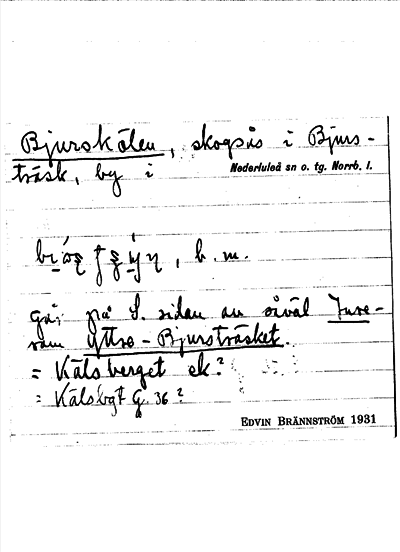 Bjurskölen, skogsås i Bjurs-
träsk, by i Nederluleå sn o. tg. Norrb. l.
, b. m.
på S. sidan av såväl Inre-
som Yttre-Bjursträsket.
= Kälsberget ek?
= Kälsbgt G. 36?
EDVIN BRÄNNSTRÖM 1931